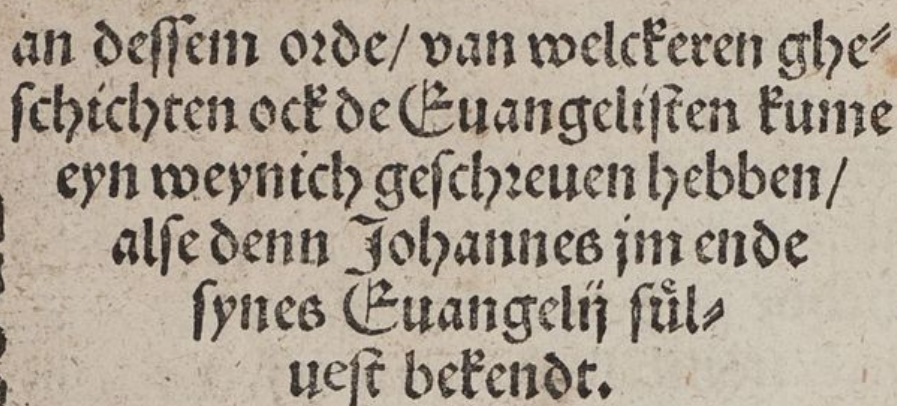 an dessem orde/ van welckeren ghe⸗
schichten ock de Euangelisten kume
eyn weynich geschreuen hebben/
alse denn Johannes jm ende
synes Euangelij suͤl⸗
uest bekendt.